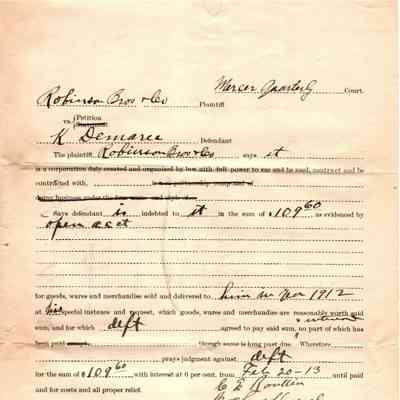 Mercer Quarterly Court.
Robinson Bros & Co Plaintiff
vs. Petition
K Demaree Defendant
The plaintiff, Robinson Bros & Co says it
is a corporation duly created and organized by law with full power to sue and be sued, contract and be
contracted with, is a partnership composed of
doing business under the firm name and style of
Says defendant is indebted to it in the sum of $109 60 as evidenced by
open acct
for goods, wares and merchandise sold and delivered to him in Nov 1912
at his special instance and request, which goods, wares and merchandise are reasonably worth said
sum, and for which deft agreed to pay said sum, no part of which has
been paid except, though same is long past due. Wherefore
prays judgment against deft
for the sum of $109 60 with interest at 6 per cent. from Feb 20-13 until paid
and for costs and all proper relief.